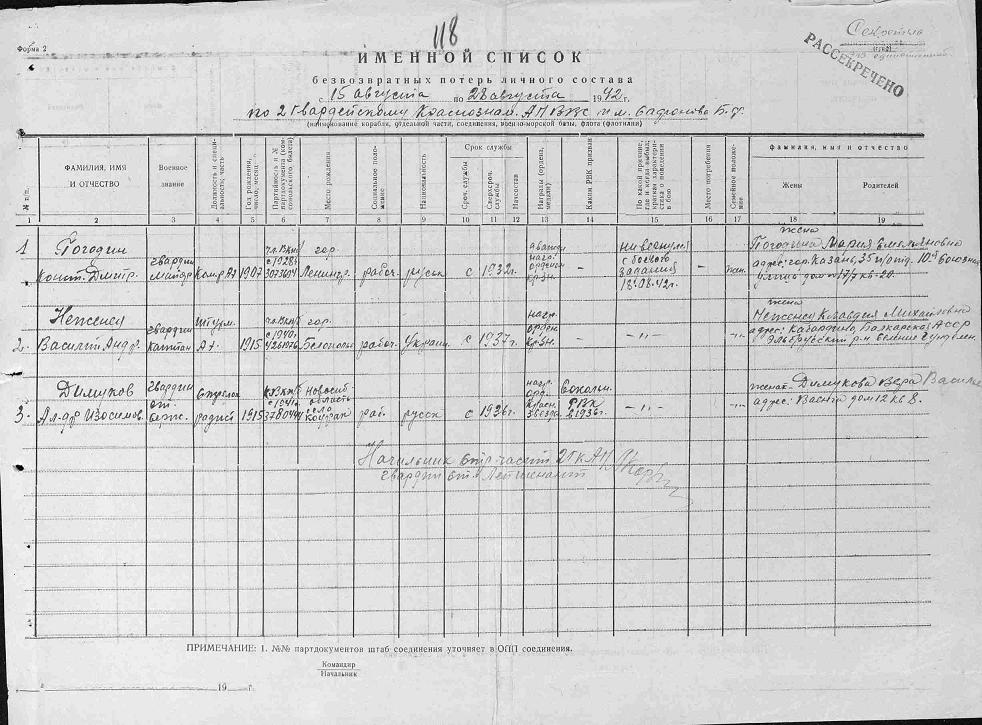 118
Форма 2
Секретно
РАССЕКРЕЧЕНО
ИМЕННОЙ СПИСОК
безвозвратных потерь личного состава
с 15 августа по 28 августа 1942 г.
по 2 Гвардейскому Краснознам. АП ВВС им. Сафонова Б.Ф.
(наименование корабля, отдельной части, соединения, военно-морской базы, флота (флотилии)
№ п/п.
ФАМИЛИЯ, ИМЯ И ОТЧЕСТВО
Военное звание
Должность и специальность, часть
Год рождения, число, месяц
Партийность и № партдокумента (комсомольского билета)
Место рождения
Социальное положение
Национальность
Срок службы
Сроч. службы
Сверхсроч. службы
Начсостав
Награды (ордена, медали)
Каким РВК призван
По какой причине, где и когда выбыл; краткая характеристика о поведении в бою
Место погребения
Семейное положение
фамилия, имя и отчество
Жены
Родителей
1 2 3 4 5 6 7 8 9 10 11 12 13 14 15 16 17 18 19
1 Погодин Конст. Дмитр. гвардии майор Ком. АЭ 1907 чл. ВКПб с 1928г. гор. Ленингр. рабоч. русск с 1932г. дважды нагр. орденом Кр. Зн. – не вернулся с боевого задания 18.08.42г. – жен.
жена
Погодина Мария Емельяновна
адрес: гор. Казань, 35 п/отд. 10я Союзная
улица дом 17/7 кв-20.
2. Неженец Василий Андр. гвардии капитан штурм. АЭ 1915 чл. ВКПб с 1940г. гор. рабоч. Украин. с 1937г. нагр. орден. Кр. Зн. – –"– – –"–
жена
Неженец Клавдия Михайловна
адрес: Кабардино, Балкарская АССР
Эльбрусский р-н селение
3. Димуков Ал-др Изосимов. гвардии ст. серж. стрелок радист 1915 с 1941г. Новосиб. область село рабоч. русск с 1936г. нагр. орд. Красн. Звезда РВК в 1936г. –"– –"–
женат – Димукова Вера Василье
адрес: Ваенга дом 12 кв 8.
Начальник стр. части 2ГКАП
гвардии ст. Лейтенант
ПРИМЕЧАНИЕ: 1. №№ партдокументов штаб соединения уточняет в ОПП соединения.
Командир
Начальник
19 г.